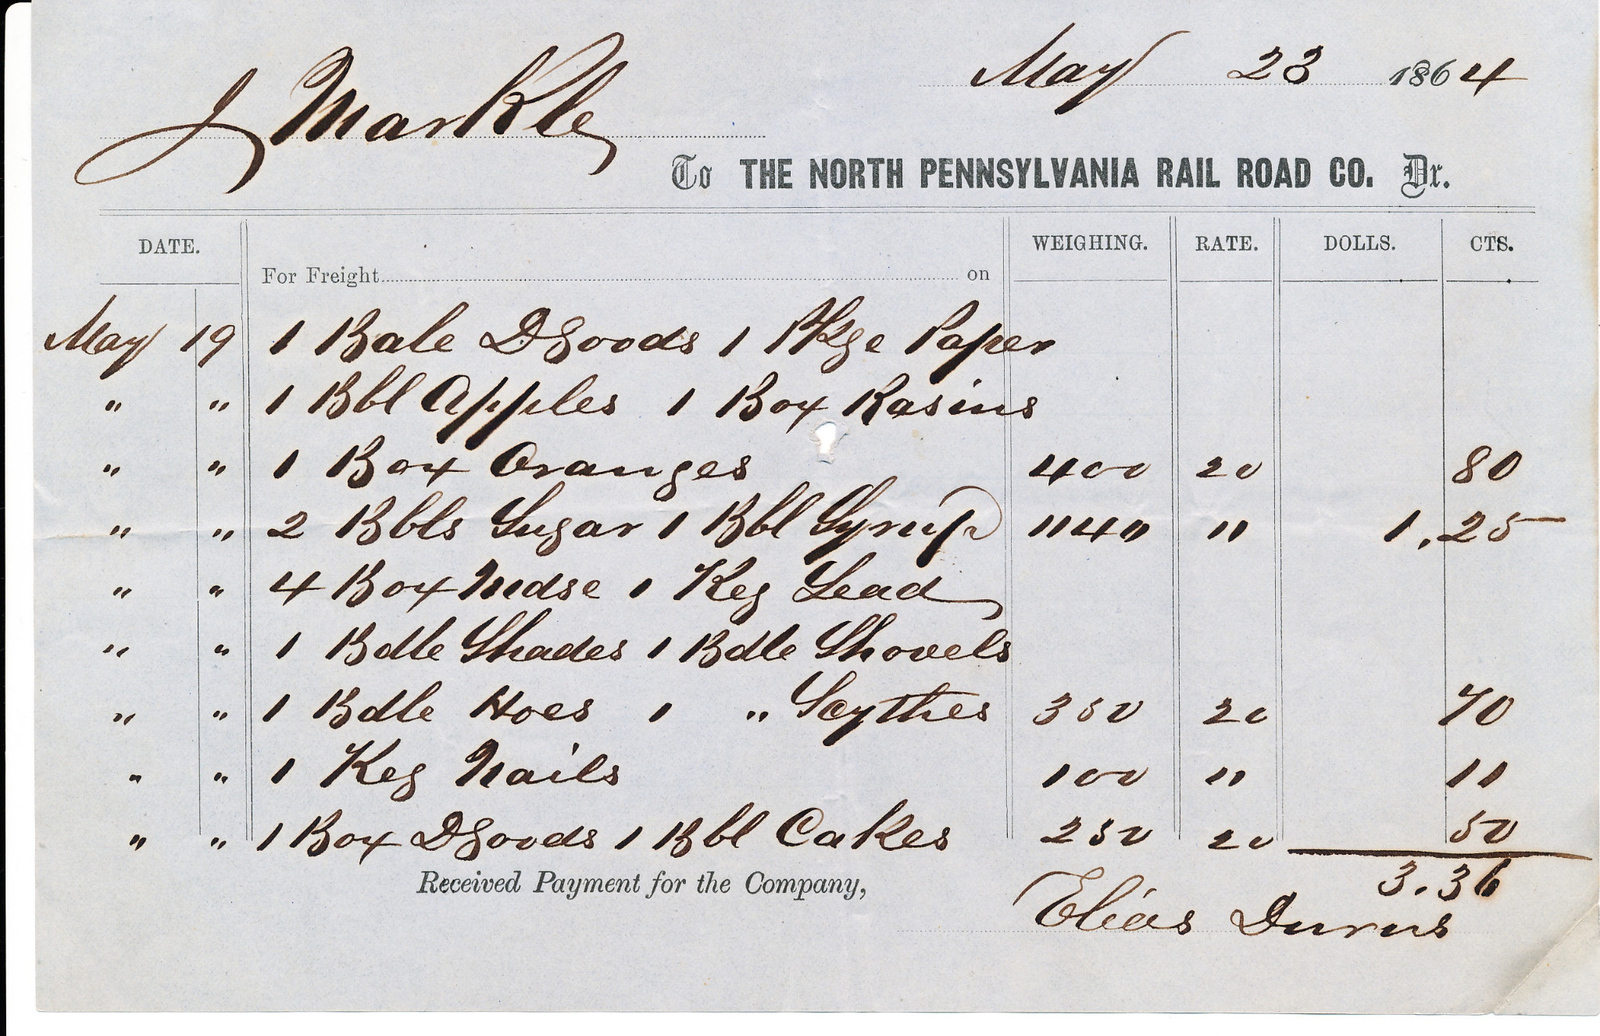 May 23 1864
J Markle
To THE NORTH PENNSYLVANIA RAIL ROAD CO. Dr.
DATE. WEIGHING. RATE. DOLLS. CTS.
For Freight on
May 19 1 Bale DGoods 1 Pkge Paper
" " 1 Bbl Apples 1 Box Rasins
" " 1 Box Oranges 400 20 80
" " 2 Bbls Sugar 1 Bbl Syrup 1140 11 1.25
" " 4 Box Mdse 1 Keg Lead
" " 1 Bdle Shades 1 Bdle Shovels
" " 1 Bdle Hoes 1 " Scythes 350 20 70
" " 1 Keg Nails 100 11 11
" " 1 Box DGoods 1 Bbl Cakes 250 20 50
3.36
Received Payment for the Company,
Elias